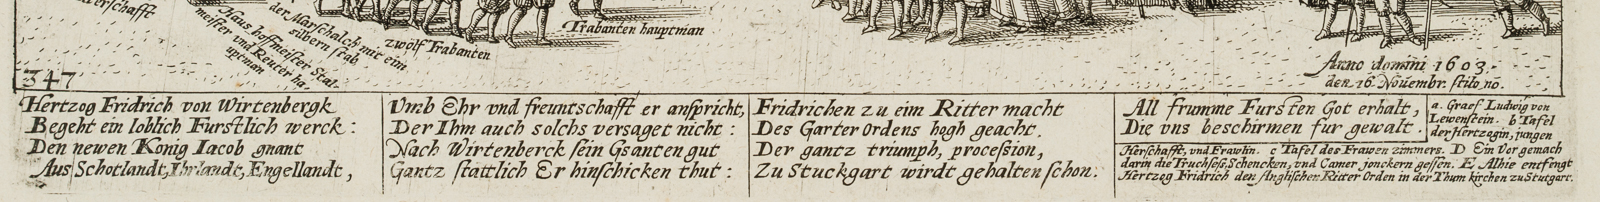 der Marschalch mit eim
silbern stab
Haus hoffmeister Stal-
meister vnd Reuter ha-
uptman
zwölf Trabanten
Trabanten hauptman
Anno domini 1603.
den 16 Nouembr. stilo no.
347
Hertzog Fridrich von Wirtenbergk
Begeht ein loblich Furstlich werck:
Den newen König Iacob gnant
Aus Schotlandt, Ihrlandt, Engellandt,
Vmb Ehr vnd freuntschafft er anspricht,
Der Ihm auch solchs versaget nicht:
Nach Wirtenberck sein Gsanten gut
Gantz stattlich Er hinschicken thut:
Fridrichen zu eim Ritter macht
Des Garter Ordens hogh geacht.
Der gantz triumph, procession,
Zu Stuckgart wirdt gehalten schon.
All frumme Fursten Got erhalt,
Die vns beschirmen fur gewalt.
a. Graef Ludwig von
Lewenstein. b Tafel
der Hertzogin, jungen
Herschafft, vnd Frawlin. c Tafel des Frawen zimmers. D Ein Vor gemach
darin die Truchsess, Schencken, vnd Camer jonckern gessen. E Alhie entfengt
Hertzog Fridrich den Anglischen Ritter Orden in der Thum kirchen zu Stutgart.